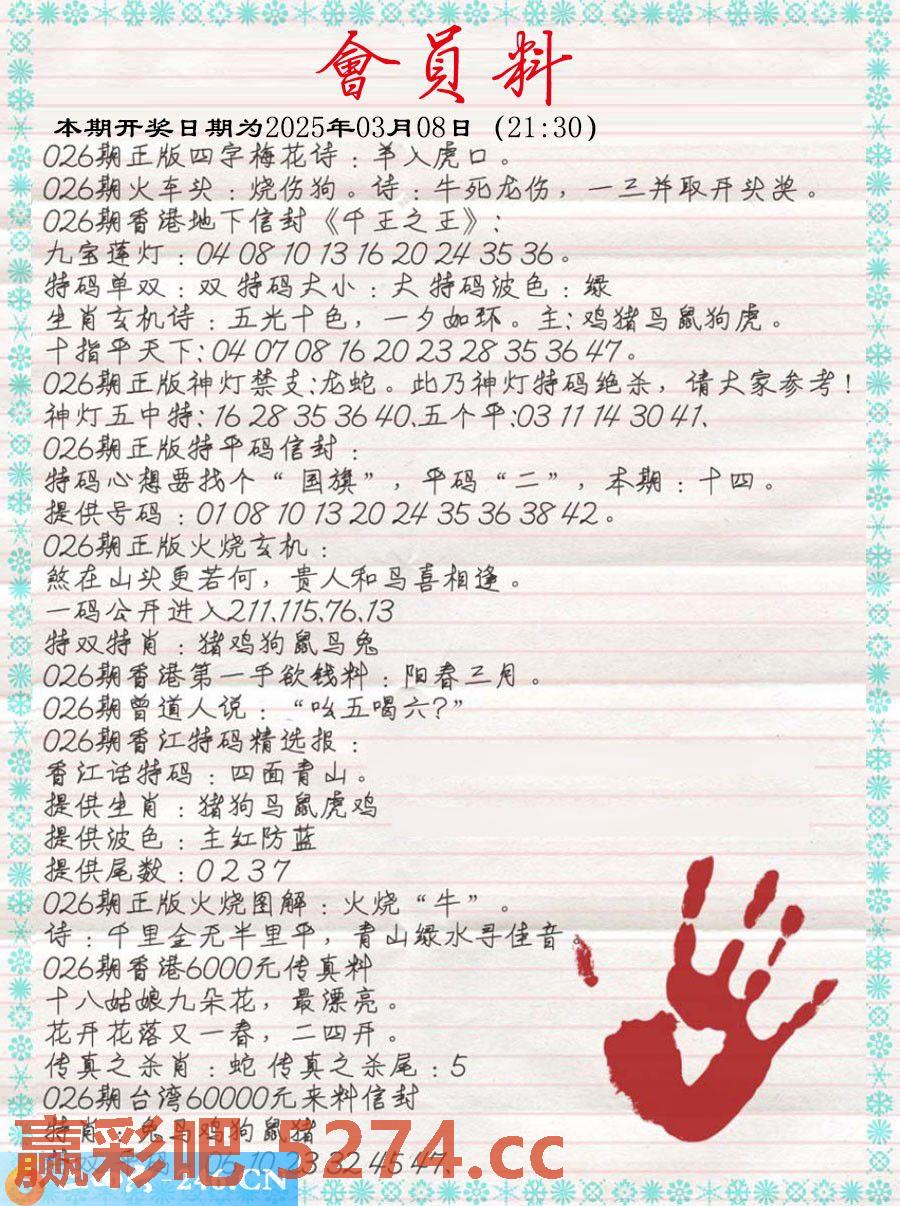 會員料
本期开奖日期为2025年03月08日（21:30）
026期正版四字梅花诗：羊入虎口。
026期火车头：烧伤狗。诗：牛死龙伤，一三并取开头奖。
026期香港地下信封《千王之王》：
九宝莲灯：04 08 10 13 16 20 24 35 36。
特码单双：双 特码大小：大 特码波色：绿
生肖玄机诗：五光十色，一夕如环。主：鸡猪马鼠狗虎。
十指平天下：04 07 08 16 20 23 28 35 36 47。
026期正版神灯禁支:龙蛇。此乃神灯特码绝杀，请大家参考！
神灯五中特：16 28 35 36 40、五个平:03 11 14 30 41、
026期正版特平码信封：
特码心想要找个“国旗”，平码“二”，本期：十四。
提供号码：01 08 10 13 20 24 35 36 38 42。
026期正版火烧玄机：
煞在山头更若何，贵人和马喜相逢。
一码公开进入211.115.76.13
特双特肖：猪鸡狗鼠马兔
026期香港第一手欲钱料：阳春三月。
026期曾道人说：“吆五喝六？”
026期香江特码精选报：
香江话特码：四面青山。
提供生肖：猪狗马鼠虎鸡
提供波色：主红防蓝
提供尾数：0 2 3 7
026期正版火烧图解：火烧“牛”。
诗：千里金无半里平，青山绿水寻佳音。
026期香港6000元传真料
十八姑娘九朵花，最漂亮。
花开花落又一春，二四开。
传真之杀肖：蛇 传真之杀尾：5
026期台湾60000元来料信封
特肖：兔马鸡狗鼠猪
06 10 23 32 45 47、
赢彩吧.5274.cc
246.CN